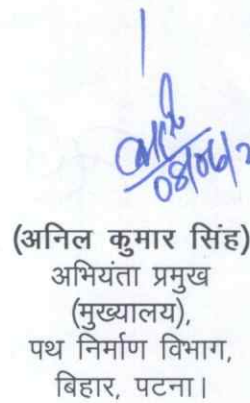 08/06/2
(अनिल कुमार सिंह)
अभियंता प्रमुख
(मुख्यालय),
पथ निर्माण विभाग,
बिहार, पटना।